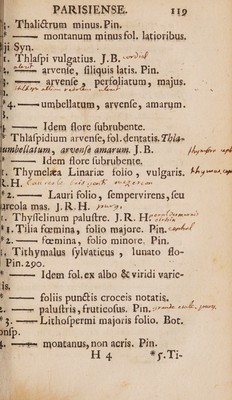 PARISIENSE. 119
Thalictrum minus. Pin.
—— montanum minus fol. latioribus.
Syn.
Thlaspi vulgatius. J. B.
—— arvense, siliquis latis. Pin.
—— arvense, perfoliatum, majus.
*4. —— umbellatum, arvense, amarum.
—— Idem flore subrubente.
Thlaspidium arvense, fol. dentatis. Thla-
umbellatum, arvense amarum. J. B.
—— Idem flore subrubente.
Thymelæa Linariæ folio, vulgaris.
R. H.
*2. —— Lauri folio, sempervirens, seu
ureola mas. J. R. H.
Thysselinum palustre. J. R. H.
*1. Tilia fœmina, folio majore. Pin.
*2. —— fœmina, folio minore. Pin.
Tithymalus sylvaticus, lunato flo-
Pin. 290.
—— Idem fol. ex albo & viridi varie-
is.
—— foliis punctis croceis notatis.
2. —— palustris, fruticosus. Pin.
*3. —— Lithospermi majoris folio. Bot.
onsp.
4. —— montanus, non acris. Pin.
H 4 *5. Ti-